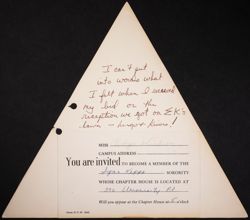 I can't put
into words what
I felt when I received
my bid or the
reception we got on ΣK's
lawn –
MISS
CAMPUS ADDRESS
You are invited TO BECOME A MEMBER OF THE
Sigma Kappa SORORITY
WHOSE CHAPTER HOUSE IS LOCATED AT
University
Will you appear at the Chapter House at o'clock